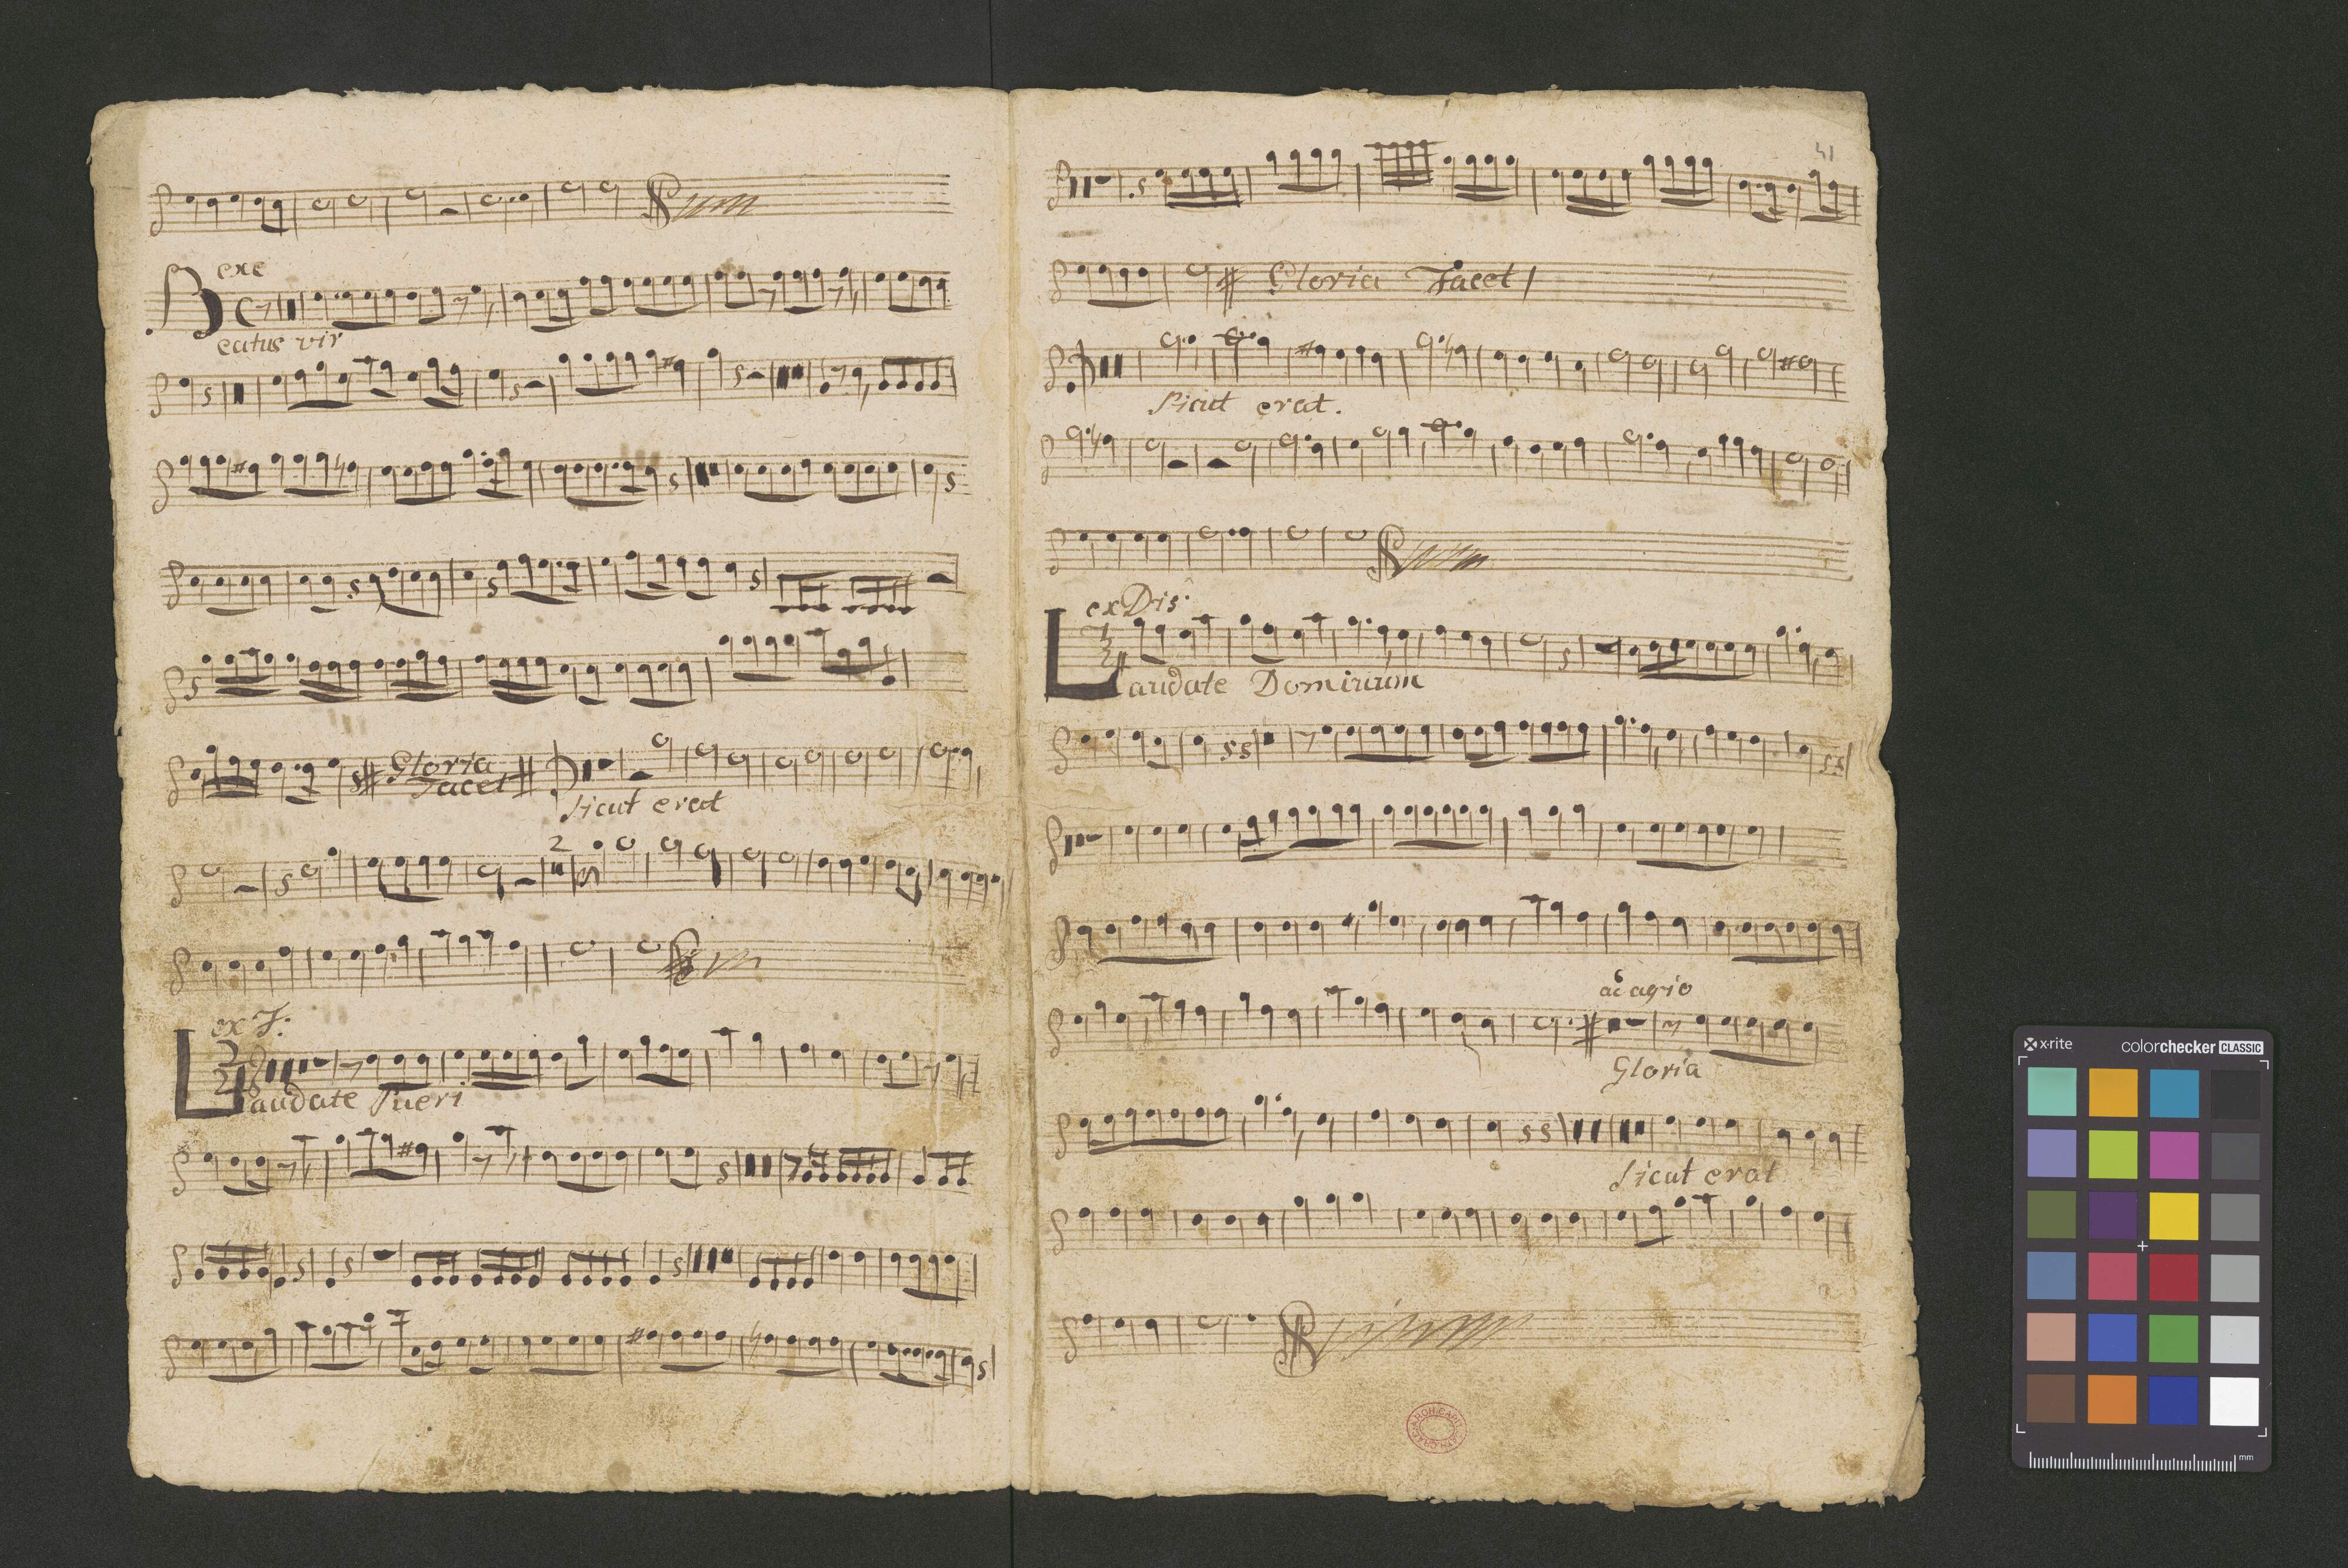 ex C
Beatus vir
Gloria
Tacet
Sicut erat
2
ex F:
Laudate Pueri
41
Gloria Tacet
Sicut erat.
ex Dis
Laudate Dominum
adagio
Gloria
Sicut erat
x-rite
colorchecker CLASSIC
mm